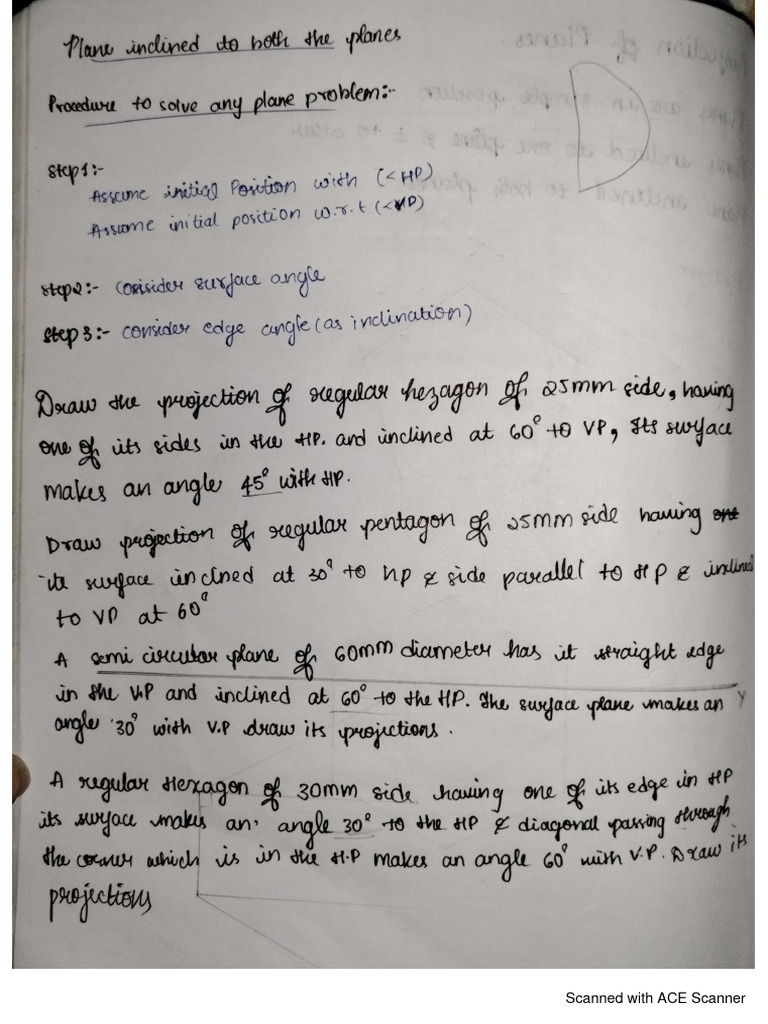 Plane inclined to both the planes
Procedure to solve any plane problem:-
Step1:-
Assume initial Position with (<HP)
Assume initial position w.r.t (<VP)
Step2:- Consider surface angle
Step 3:- consider edge angle (as inclination)
Draw the projection of regular hexagon of 25mm side, having
one of its sides in the HP. and inclined at 60° to VP, Its surface
makes an angle 45° with HP.
Draw projection of regular pentagon of 25mm side having one
its surface inclned at 30° to HP & side parallel to HP & inclined
to VP at 60°
A semi circular plane of 60mm diameter has it straight edge
in the V.P and inclined at 60° to the HP. The surface plane makes an
angle 30° with V.P draw its projections.
A regular Hexagon of 30mm side having one of its edge in HP
its surface makes an angle 30° to the HP & diagonal passing through
the corner which is in the H.P makes an angle 60° with V.P. Draw its
projections
Scanned with ACE Scanner